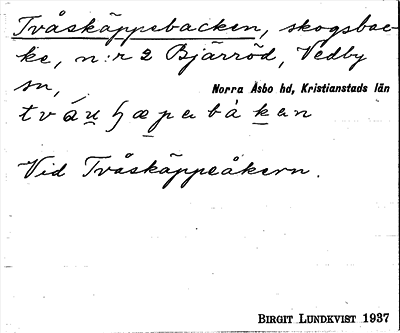 Tvåskäppebacken, skogsbac-
ke, n:r 2 Bjärröd, Vedby
sn, Norra Åsbo hd, Kristianstads län
Vid Tvåskäppeåkern.
BIRGIT LUNDKVIST 1937